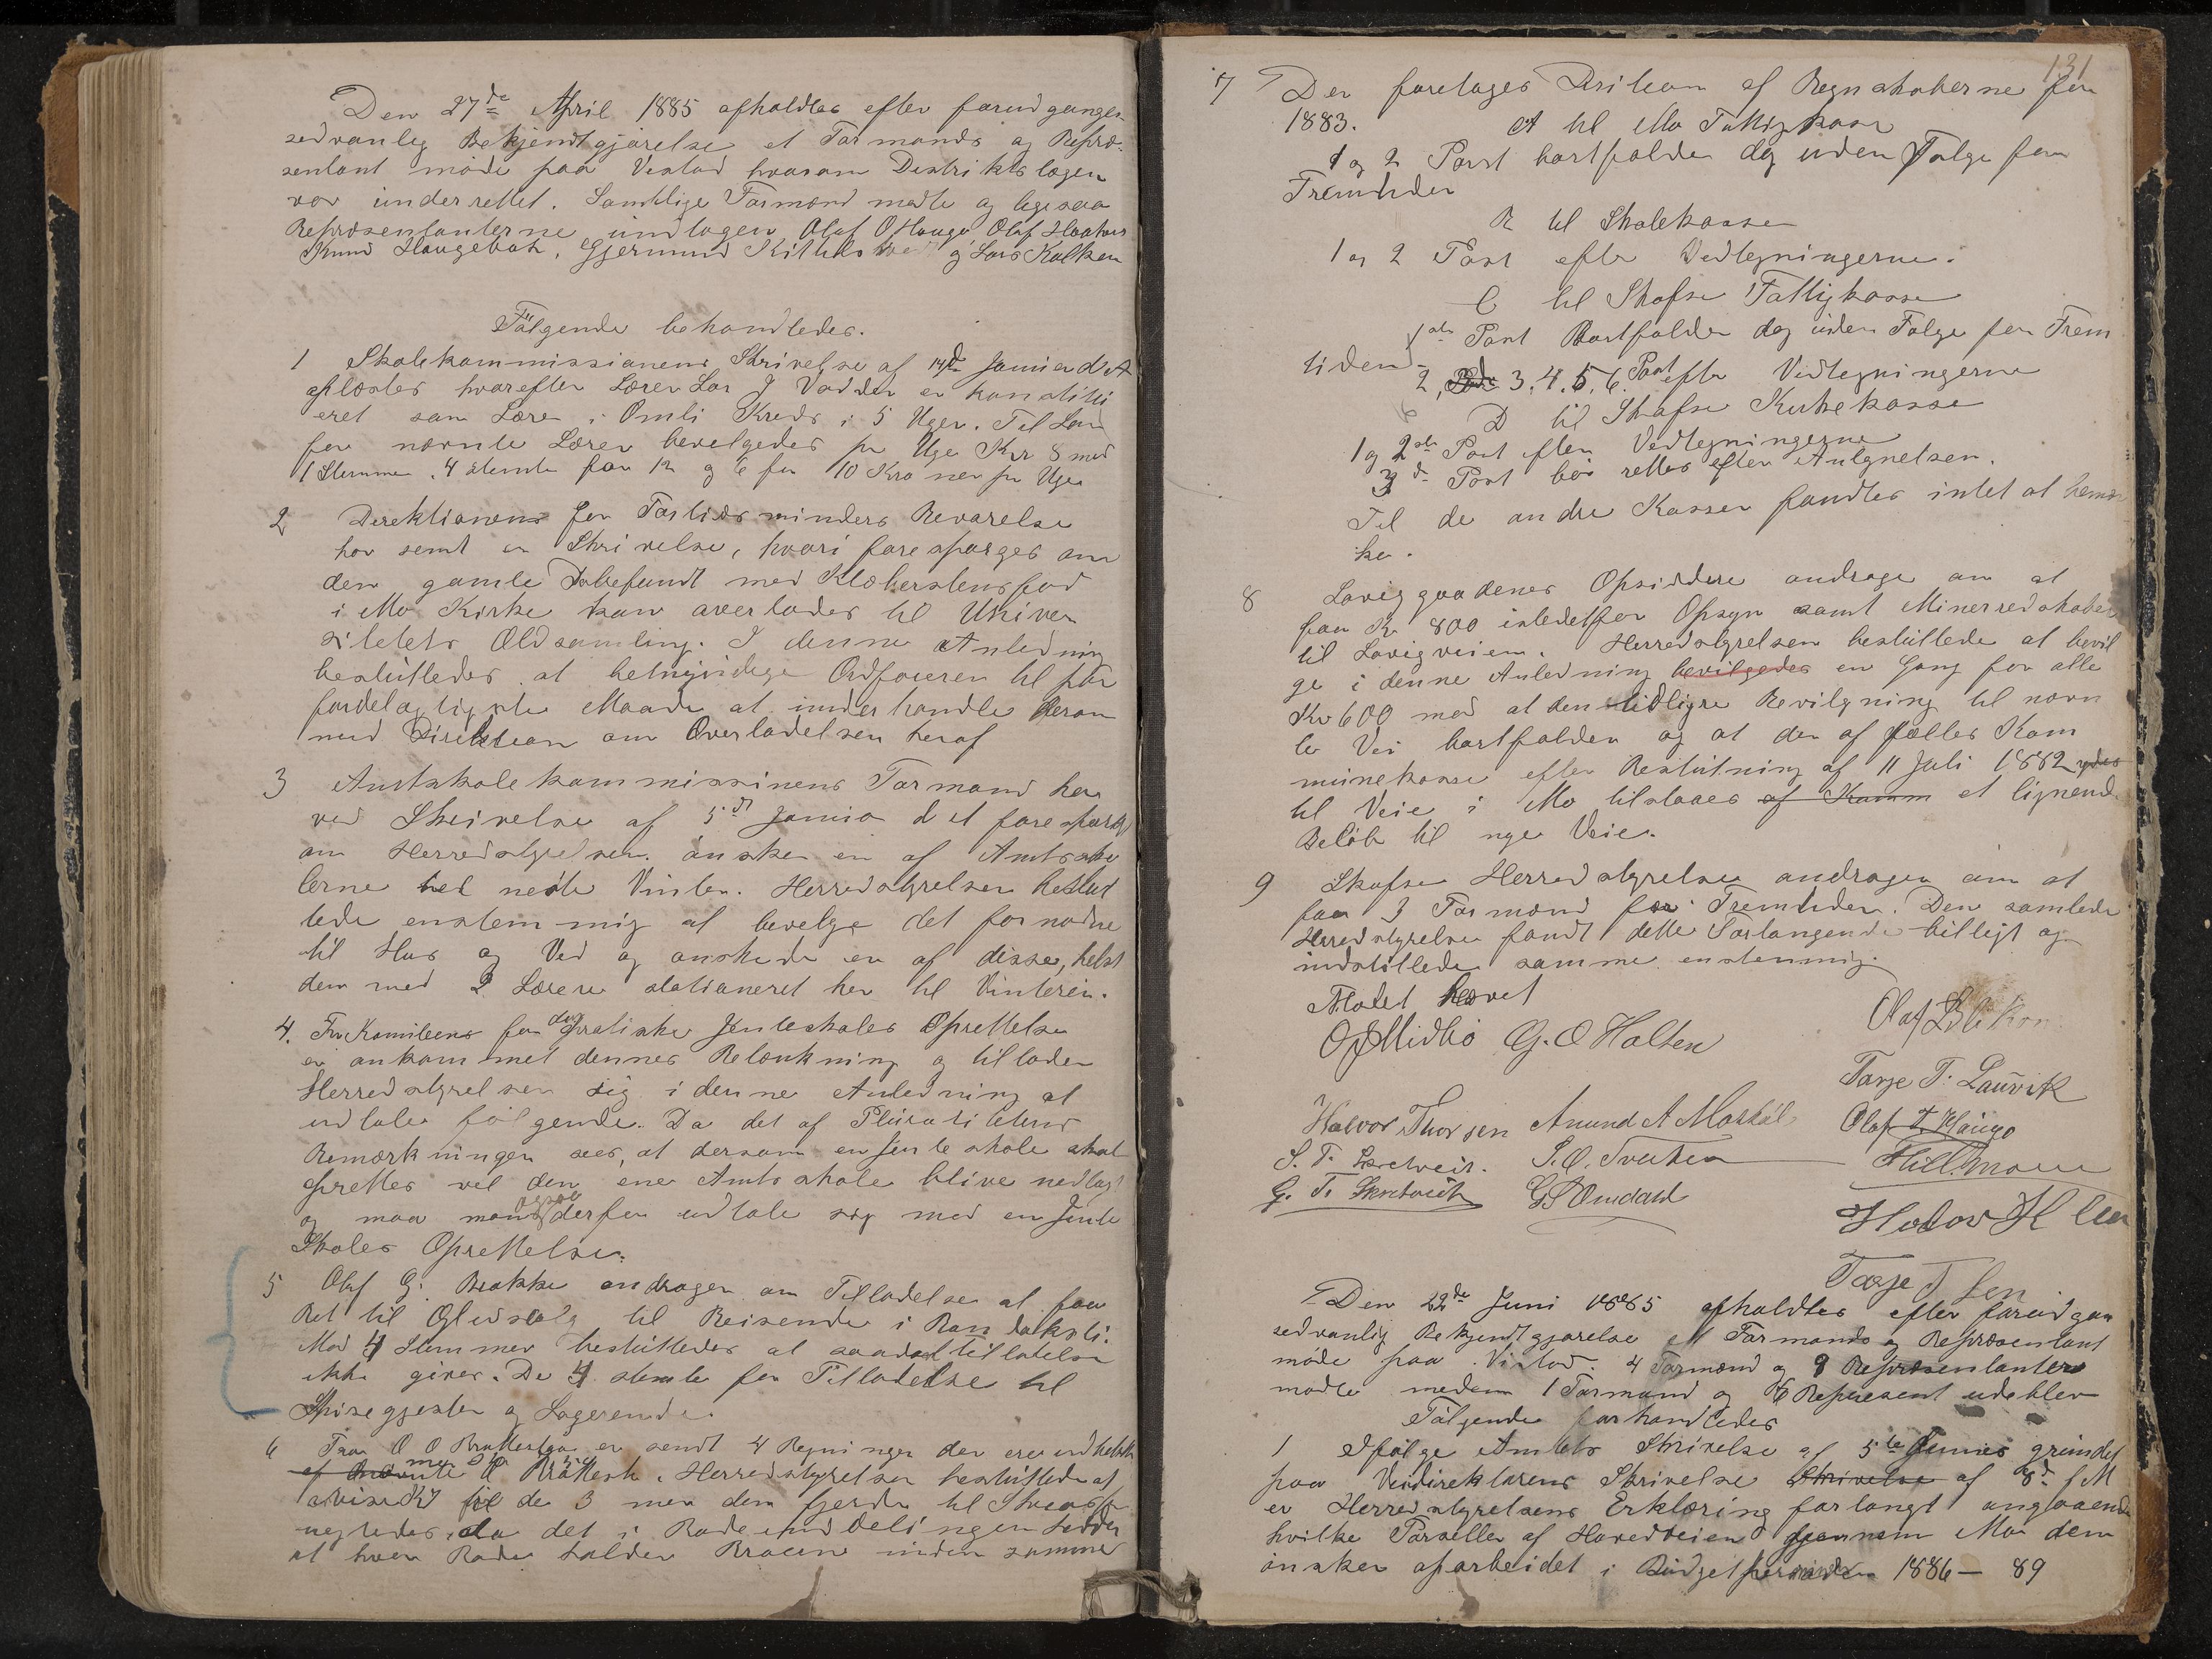 Den 27de April 1885 afholdtes efter forudgangen
sedvanleg Bekjendtgjørelse et Formands og Repræ-
sentant møde paa Vistad hvorom Distriktslægen
var underrettet. Samtlige Formænd mødte og ligesaa
Repræsentanterne undtagen Olaf O Haugo Olaf
Knud Haugebak, Gjermund og Lars Kolken
Følgende behandledes.
1 Skolekommissionens Skrivelse af 14de Januar d A
oplæstes hvorefter Lærer Lar J Vadder er konstitu
eret som Lærer i Omli Kreds i 5 Uger. Til Løn
for nævnte Lærer bevilgedes pr Uge Kr 8 med
1 Stemme. 4 stemte for 12 og 6 for 10 Kroner pr Uge
2 Direktionen for Fortidsminders Bevarelse
har sendt en Skrivelse, hvori forespørges om
den gamle Døbefundt med Klæberstensfod
i Mo Kirke kan overlades til Univer
sitetets Oldsamling. I denne Anledning
besluttedes at bemyndige Ordføreren til paa
fordelagtigste Maade at underhandle derom
med Direktion om Overladelsen heraf
3 Amtskolekommissinens Formand har
ved Skrivelse af 5te Janua d A forespurgt
om Herredstyrelsen ønsker en af Amtssko
lerne hed neste Vinter. Herredstyrelsen beslut
tede enstemmig at bevilge det fornødne
til Hus og Ved og ønskede en af disse, helst
den med 2 Lærere stationeret her til Vinteren.
4. Fra Komiteens for den praktiske Jenteskoles Oprettelse
er ankommet dennes Betænkning og tillader
Herredstyrelsen sig i denne Anledning at
udtale følgende. Da det af Pluralitetens
Bemærkninger sees, at dersom en Jenteskole skal
oprettes vil den ene Amtsskole blive nedlagt
og maa man derfor udtale sig mod en Jente
Skoles Oprettelse.
5 Olaf G. Brokke andrager om Tilladelse at faa
Ret til Øludsalg til Reisende i
Mod 4 Stemmer besluttedes at saadan tilladelse
ikke gives. De 4 stemte for Tilladelse til
Spisegjester og Logerende.
6 Fra O O er sendt 4 Regninger der ere
Herredstyrelsen besluttede at
de 3 men den fjerde til
negtedes, da det i Rodeinddelingen
at hver Rode holder Broerne inden samme
131
7 Der foretages Desision af Regnskaberne for
1883. A til Mo Fattigkasse
1 og 2 Post bortfalder dog uden Følge for
Fremtiden
B til Skolekassen
1 og 2 Post efter Vedtegningerne.
C til Skafse Fattigkasse
1ste Post Bortfalder dog uden Følge for Frem
tiden
2, 3. 4. 5. 6. Post efter Vedtegningerne
D til Skafse Kirkekasse
1 og 2den Post efter Vedtegningerne
3de Post bør rettes efter Antegnelsen.
Til de andre Kasser fandtes intet at bemær
ke.
8 Lavig gaardenes Opsiddere androge om at
faa Kr 800 istedetfor Opsyn samt Minerredskaber
til Lavigveien. Herredstyrelsen besluttede at bevil
ge i denne Anledning bevilgedes en Gang for alle
Kr 600 mod at den tidligre Bevilgning til nævn
te Vei bortfalder og at der af fælles Kom
munekasse efter Beslutning af 11 Juli 1882 ydes
til Veie i Mo tilstaaes af Komm et lignende
Beløb til nye Veie.
9 Skafse Herredstyrelse andrager om at
faa 3 Formænd for Fremtiden. Den samlede
Herredstyrelse fandt dette Forlangende billigt og
indstillede samme enstemmig.
Mødet hævet
O J Midbø G. O Holten Olaf
Tarje T. Laurik
Halvor Thorsen Anund A Olaf T. Haugo
S. O.
G. T. G S Omdahl
Tarje T
Den 22de Juni 1885 afholdtes efter forudgaa
sedvanlig Bekjendtgjørelse et Formands og Repræsentant
møde paa Vistad. 4 Formænd og 8 Repræsentanter
mødte medens 1 Formand og 6 Repræsent udeblev
Følgende forhandledes
1 Ifølge Amtets Skrivelse af 5te Juni grundet
paa Veidirektørens Skrivelse Skrivelse af
er Herredstyrelsens Erklæring forlangt angaaende
hvilke Parseller af Hovedveien gjennem Mo dem
ønsker oparbeidet i Budgetperioden 1886 — 89